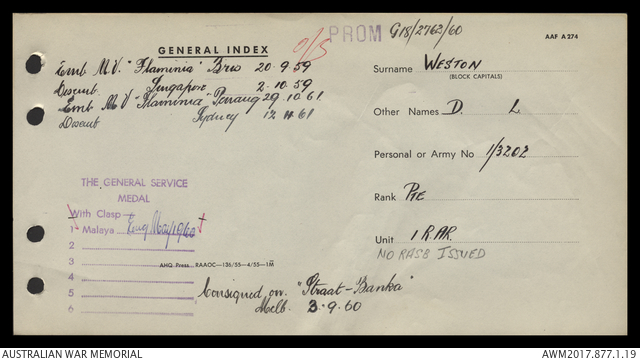 PROM G18/2762/60
AAF A 274
GENERAL INDEX O/S
Emb M.V. "Flaminia" Bris 20.9.59
Disemb. Singapore 2.10.59
Emb M V "Flaminia" Penang 29.10.61
Disemb Sydney 12.11.61
Surname WESTON
(BLOCK CAPITALS)
Other Names D. L
Personal or Army No 1/3202
Rank PTE
Unit 1 R.A.R.
NO RASB ISSUED
THE GENERAL SERVICE
MEDAL
With Clasp
1 Malaya Eng May/19/60
2
3
4
5
6
AHQ Press RAAOC—136/55—4/55—1M
Consigned on "Straat-Banka"
Melb. 3.9.60
AUSTRALIAN WAR MEMORIAL
AWM2017.877.1.19